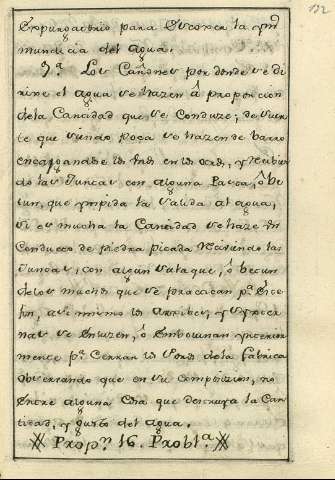 122
Expurgatorio para Recoxer la ym
mundicia del agua.
3ª Los Cañones por donde se di
rixe el agua se hazen á proporcion
dela Cantidad que se Conduze; de suer
te que siendo poca se hazen de barro
encajonandose los unos en los otros, y
das las Juncas con alguna Pasta, ô Be
tun, que ympida la salida al agua,
si es mucha la Cantidad se haze un
Conducto de piedra picada las
Juntas, con algun sulaque, ô betun
delos muchos que se practican pª este
fin, asi mismo los Arribes, y Cister
nas se enluzen, ô embetunan ynterior
mente pª Cerrar los Poros dela fabrica
Observando que en su composizion, no
entre alguna Cosa que destruya la Can
tidad, y gusto del agua.
Propⁿ 16. Problª